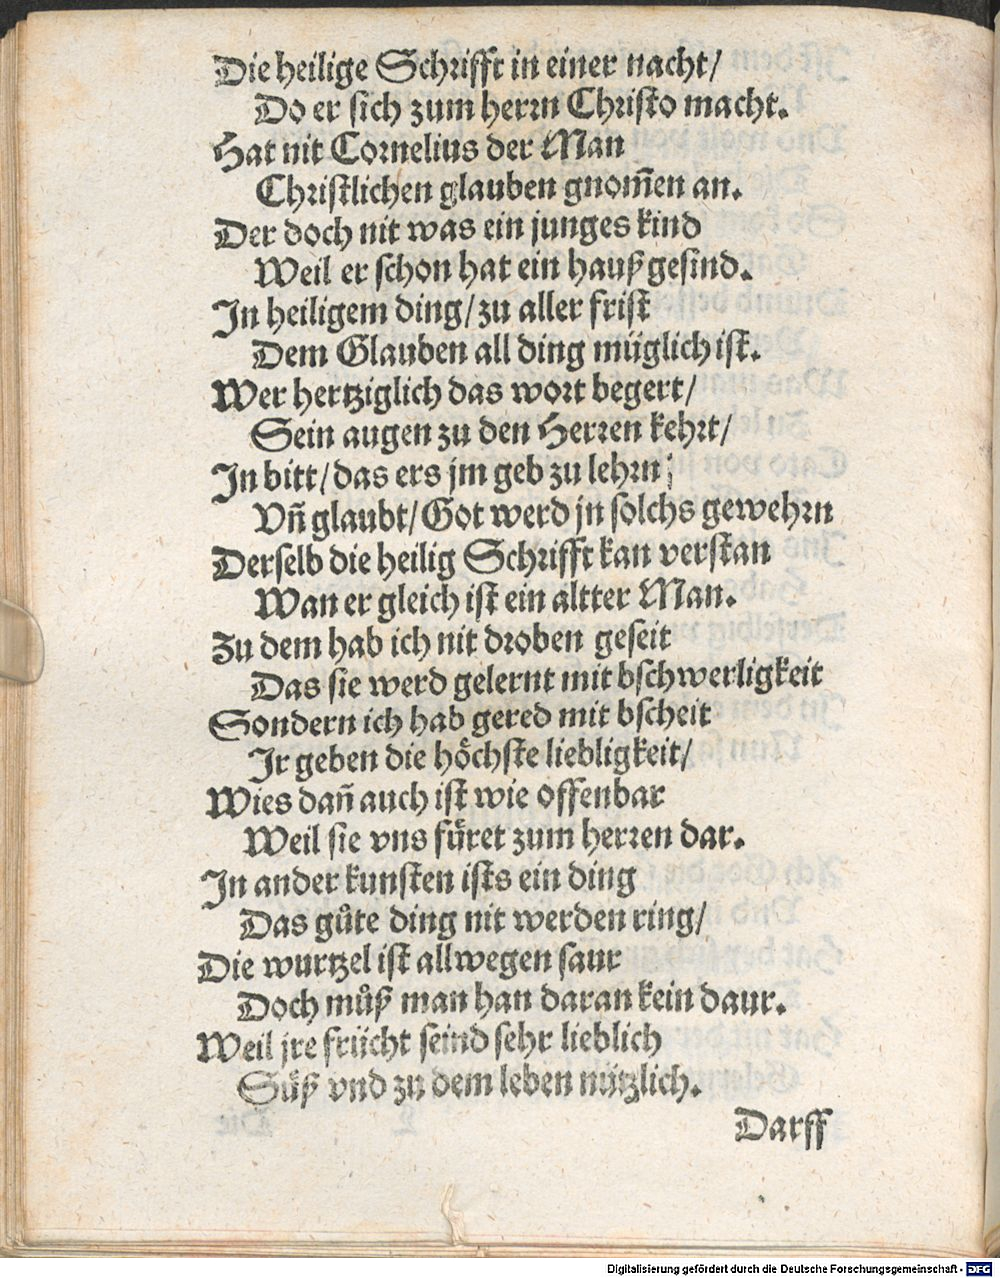 Die heilige Schrifft in einer nacht/
Do er sich zum herrn Christo macht.
Hat nit Cornelius der Man
Christlichen glauben gnom̃en an.
Der doch nit was ein junges kind
Weil er schon hat ein haußgesind.
In heiligem ding/zu aller frist
Dem Glauben all ding müglich ist.
Wer hertziglich das wort begert/
Sein augen zu den Herren kehrt/
In bitt/das ers jm geb zu lehrn/
Vñ glaubt/Got werd jn solchs gewehrn
Derselb die heilig Schrifft kan verstan
Wan er gleich ist ein altter Man.
Zu dem hab ich nit droben geseit
Das sie werd gelernt mit bschwerligkeit
Sondern ich hab gered mit bscheit
Ir geben die höchste liebligkeit/
Wies dañ auch ist wie offenbar
Weil sie vns füret zum herren dar.
In ander kunsten ists ein ding
Das gůte ding nit werden ring/
Die wurtzel ist allwegen saur
Doch můß man han daran kein daur.
Weil jre frücht seind sehr lieblich
Süß vnd zu dem leben nützlich.
Darff
Digitalisierung gefördert durch die Deutsche Forschungsgemeinschaft - DFG